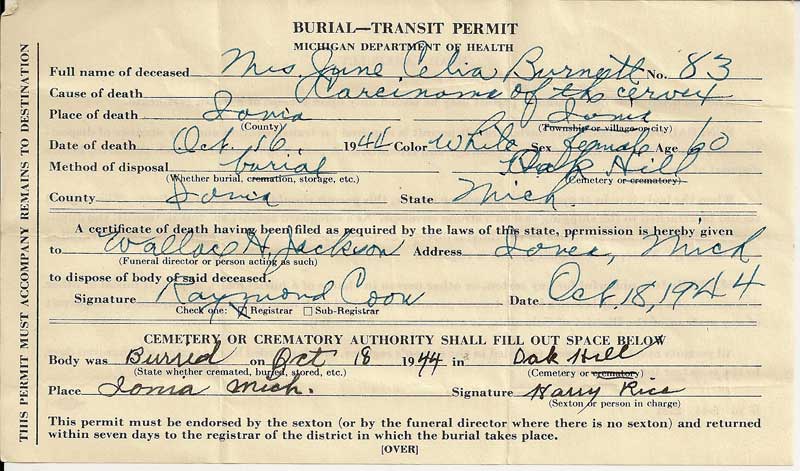 BURIAL—TRANSIT PERMIT
MICHIGAN DEPARTMENT OF HEALTH
Full name of deceased Mrs June Celia Burnett No. 83
Cause of death Carcinoma of the cervix
Place of death Ionia Ionia
(County) (Township or village or city)
Date of death Oct. 16, 1944 Color White Sex female Age 60
Method of disposal burial Oak Hill
(Whether burial, cremation, storage, etc.) (Cemetery or crematory)
County Ionia State Mich.
A certificate of death having been filed as required by the laws of this state, permission is hereby given
to Wallace H. Jackson Address Ionia, Mich
(Funeral director or person acting as such)
to dispose of body of said deceased.
Signature Raymond Coon Date Oct. 18, 1944
Check one: ☒ Registrar ☐ Sub-Registrar
CEMETERY OR CREMATORY AUTHORITY SHALL FILL OUT SPACE BELOW
Body was Burried on Oct 18 1944 in Oak Hill
(State whether cremated, buried, stored, etc.) (Cemetery or crematory)
Place Ionia Mich. Signature Harry Rice
(Sexton or person in charge)
This permit must be endorsed by the sexton (or by the funeral director where there is no sexton) and returned
within seven days to the registrar of the district in which the burial takes place.
[OVER]
THIS PERMIT MUST ACCOMPANY REMAINS TO DESTINATION